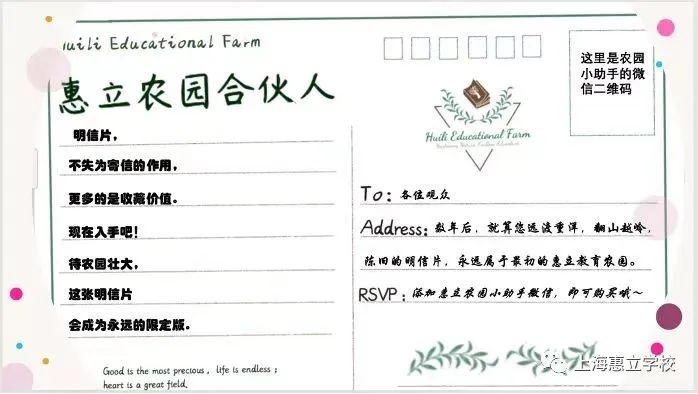 Huili Educational Farm
惠立农园合伙人
明信片，
不失为寄信的作用，
更多的是收藏价值。
现在入手吧！
待农园壮大，
这张明信片
会成为永远的限定版。
Good is the most precious，life is endless；
heart is a great field.
这里是农园
小助手的微
信二维码
Huili Educational Farm
To：各位观众
Address：数年后，就算您远渡重洋，翻山越岭，
陈旧的明信片，永远属于最初的惠立教育农园。
RSVP：添加惠立农园小助手微信，即可购买哦～
上海惠立学校